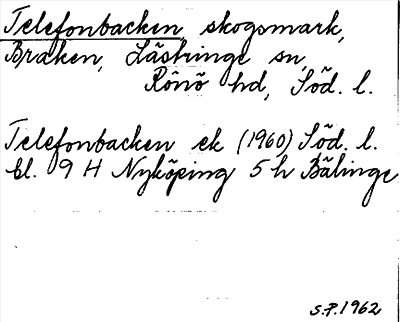 Telefonbacken, skogsmark,
Braken, Lästringe sn,
Rönö hd, Söd. l.
Telefonbacken ek (1960) Söd. l.
bl. 9 H Nyköping 5 h Bälinge
S.P. 1962